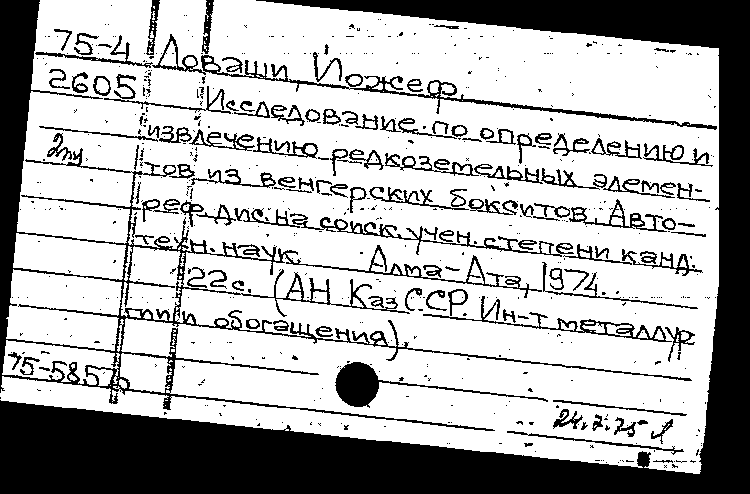 75-4 Ловаши, Йожеф.
2605 Исследование по определению и
извлечению редкоземельных элемен-
тов из венгерских бокситов. Авто-
реф. дис. на соиск. учен. степени канд.
техн. наук Алма-Ата, 1974.
22с. (АН КазССР. Ин-т металлур
гии и обогащения).
24.7.75